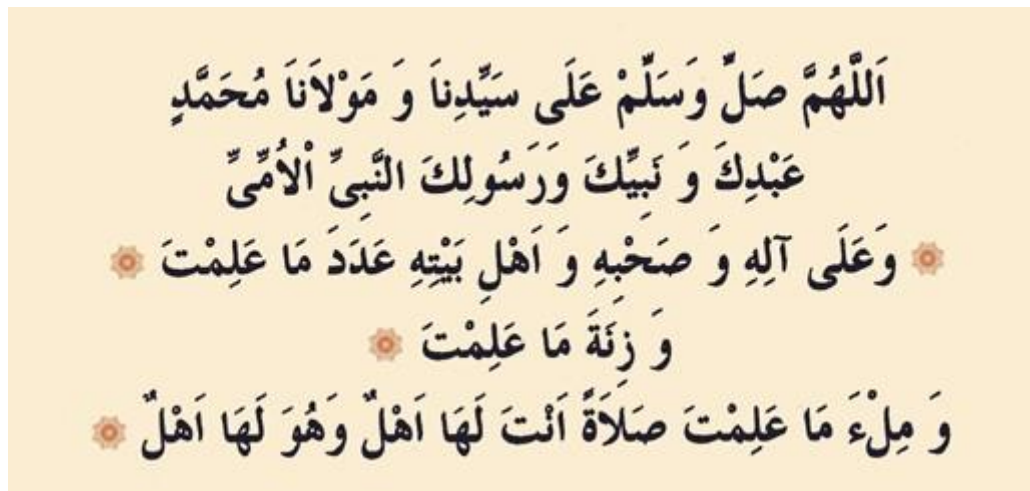 اَللَّهُمَّ صَلِّ وَسَلِّمْ عَلَى سَيِّدِنَا وَ مَوْلاَنَا مُحَمَّدٍ
عَبْدِكَ وَ نَبِيِّكَ وَرَسُولِكَ النَّبِىِّ اْلاُمِّىِّ
وَعَلَى آلِهِ وَ صَحْبِهِ وَ اَهْلِ بَيْتِهِ عَدَدَ مَا عَلِمْتَ
وَ زِنَةَ مَا عَلِمْتَ
وَ مِلْءَ مَا عَلِمْتَ صَلاَةً اَنْتَ لَهَا اَهْلٌ وَهُوَ لَهَا اَهْلٌ